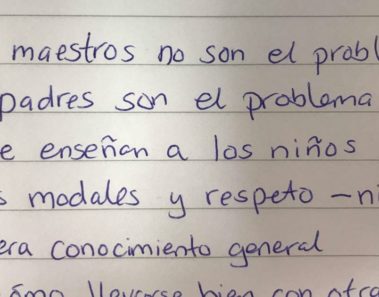 maestros no son el probl
padres son el problema
e enseñan a los niños
s modales y respeto - ni
era conocimiento general
ómo llevarse bien con otra